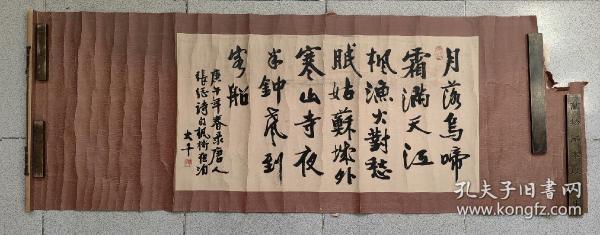 月落烏啼
霜滿天江
枫漁火對愁
眠姑蘇城外
寒山寺夜
半鐘聲到
客船
庚午年春录唐人
張继詩枫桥夜泊
大千
孔夫子旧书网
www.kongfz.com